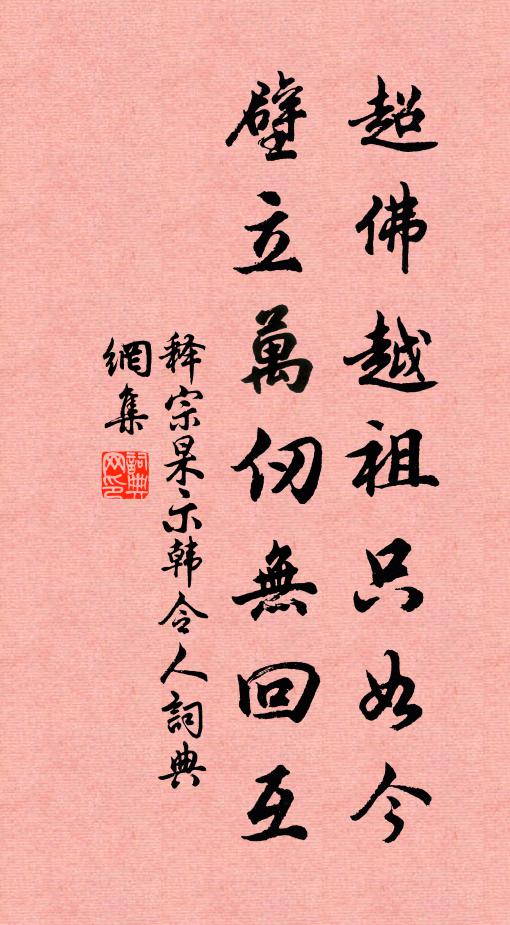 超佛越祖只如今
壁立萬仞無回互
释宗杲示韩令人詞典
網集
詞典网印